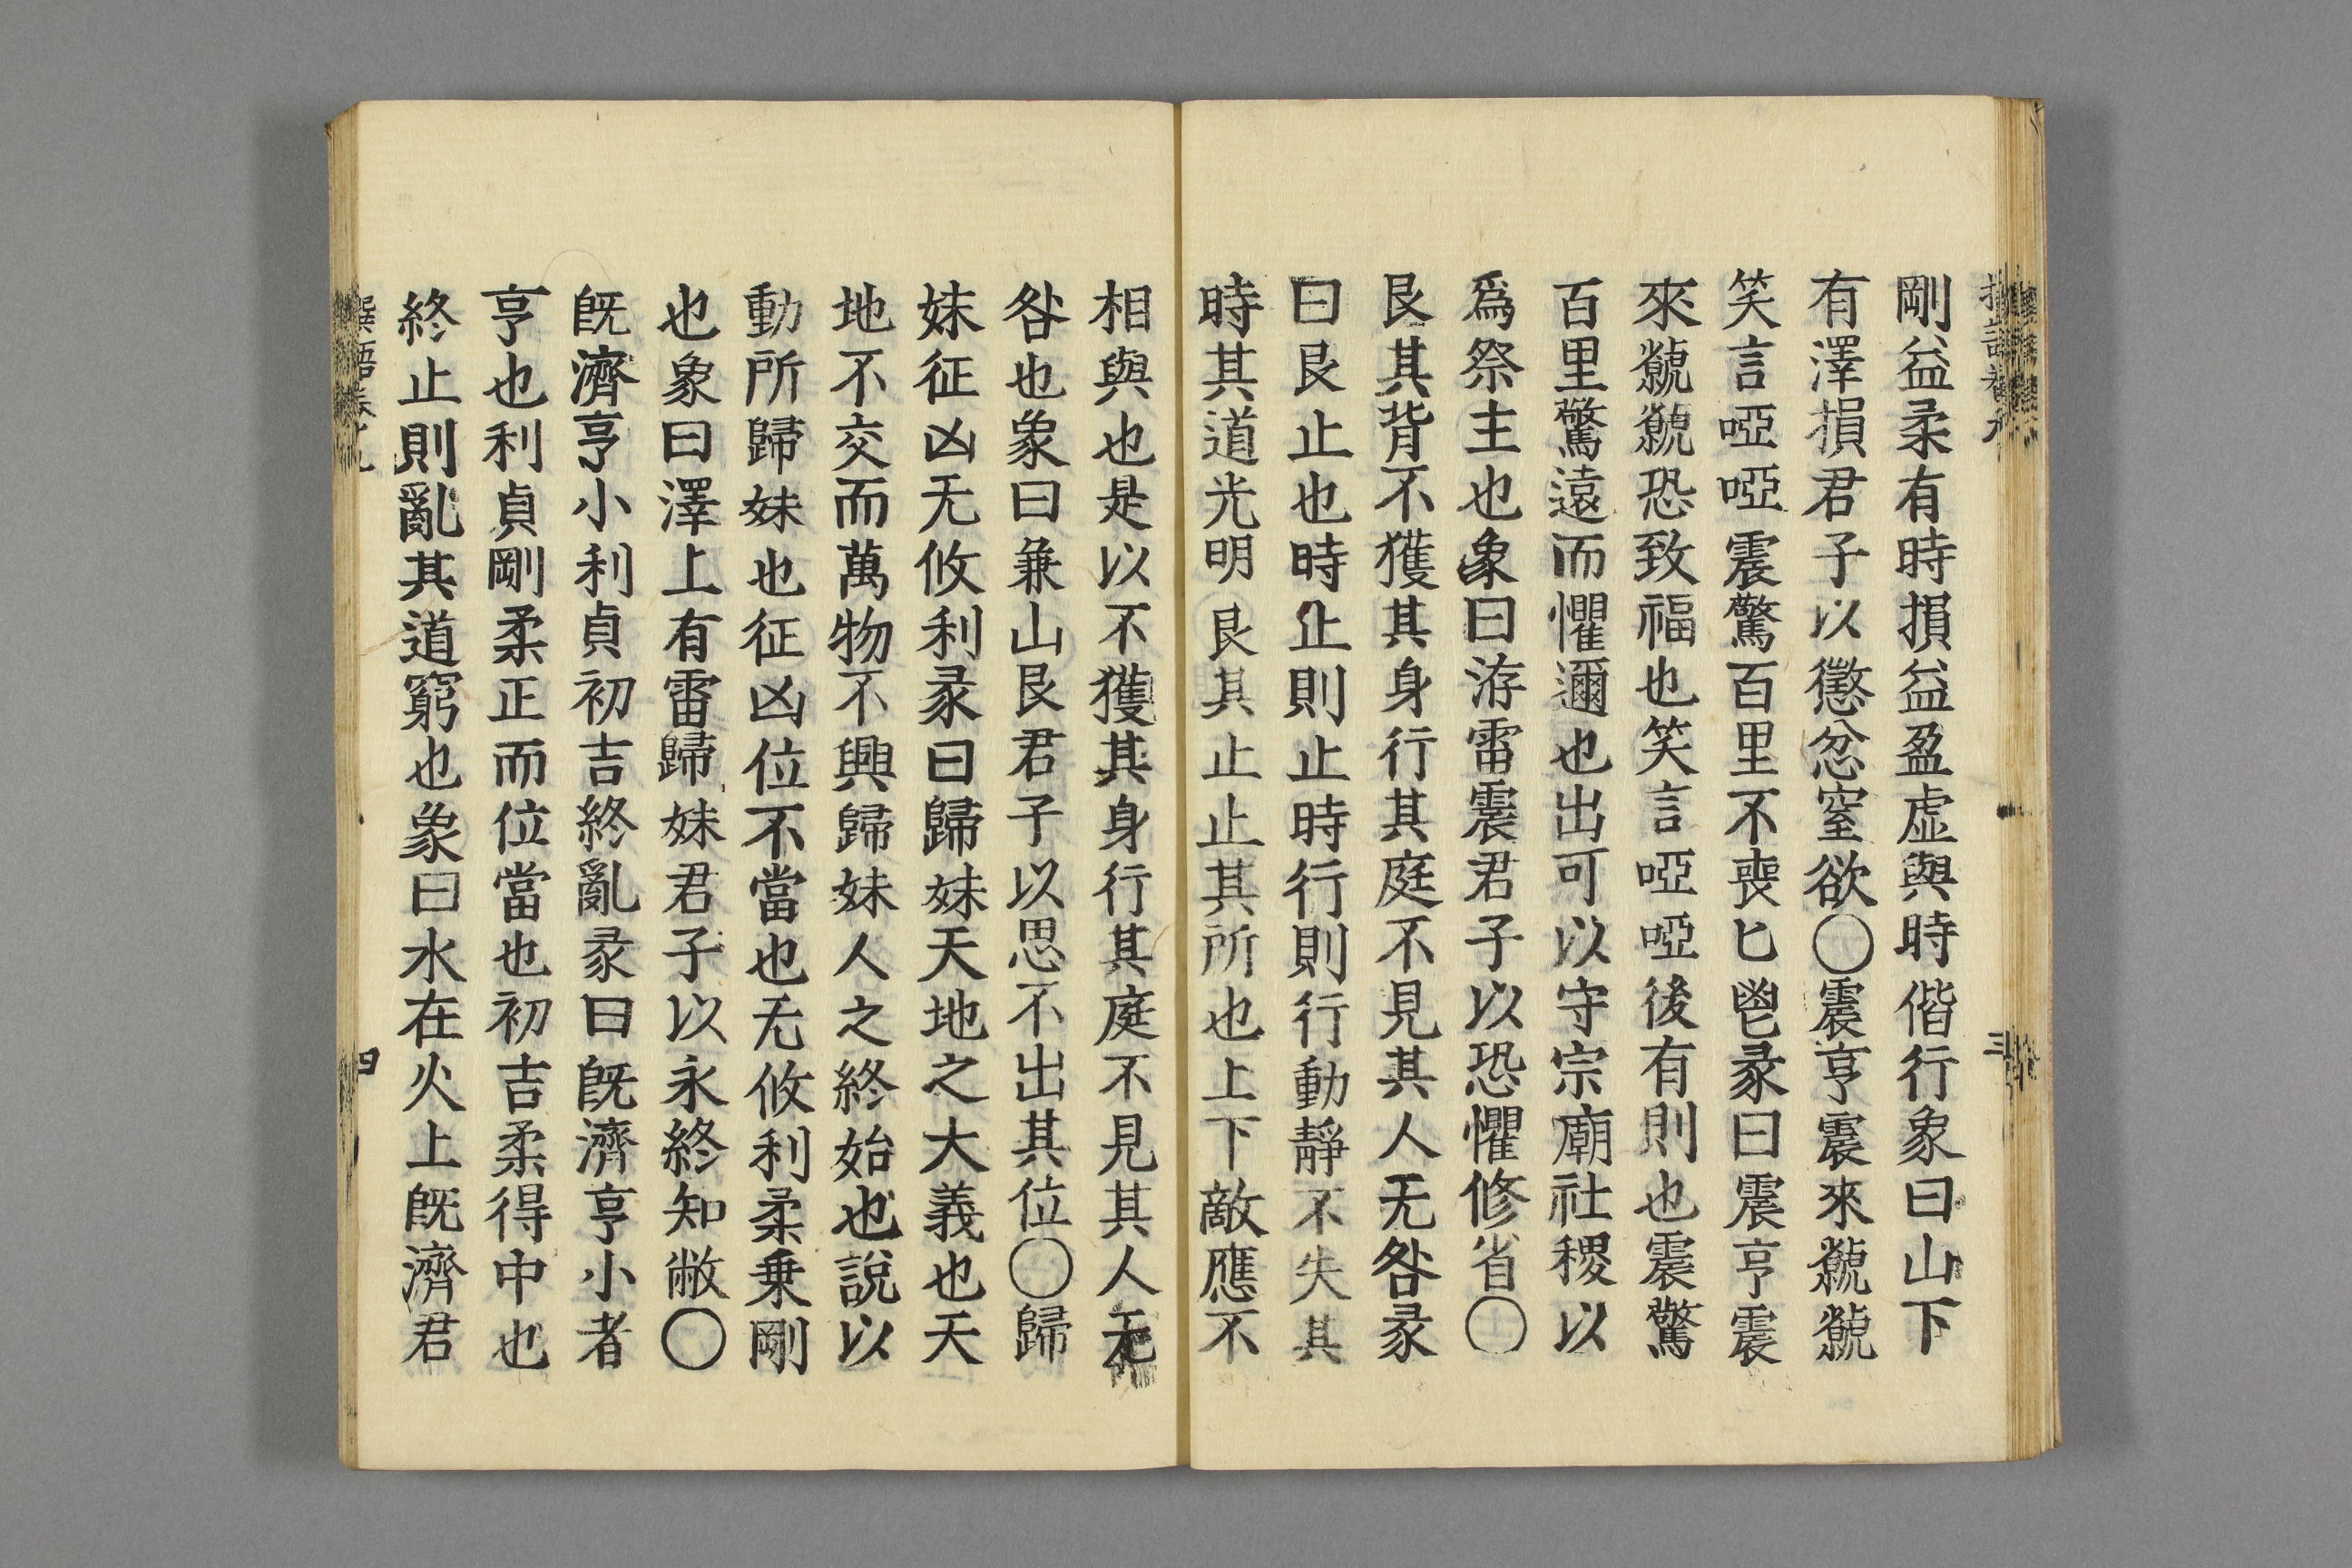 剛益柔有時損益盈虛與時偕行象曰山下
有澤損君子以懲忿窒欲○震亨震來虩虩
笑言啞啞震驚百里不喪匕鬯彖曰震亨震
來虩虩恐致福也笑言啞啞後有則也震驚
百里驚遠而懼邇也出可以守宗廟社稷以
爲祭主也象曰洊雷震君子以恐懼修省○
艮其背不獲其身行其庭不見其人无咎彖
曰艮止也時止則止時行則行動靜不失其
時其道光明艮其止止其所也上下敵應不
相與也是以不獲其身行其庭不見其人无
咎也象曰兼山艮君子以思不出其位○歸
妹征凶无攸利彖曰歸妹天地之大義也天
地不交而萬物不興歸妹人之終始也說以
動所歸妹也征凶位不當也无攸利柔乗剛
也象曰澤上有雷歸妹君子以永終知敝○
旣濟亨小利貞初吉終亂彖曰旣濟亨小者
亨也利貞剛柔正而位當也初吉柔得中也
終止則亂其道窮也象曰水在火上旣濟君
四